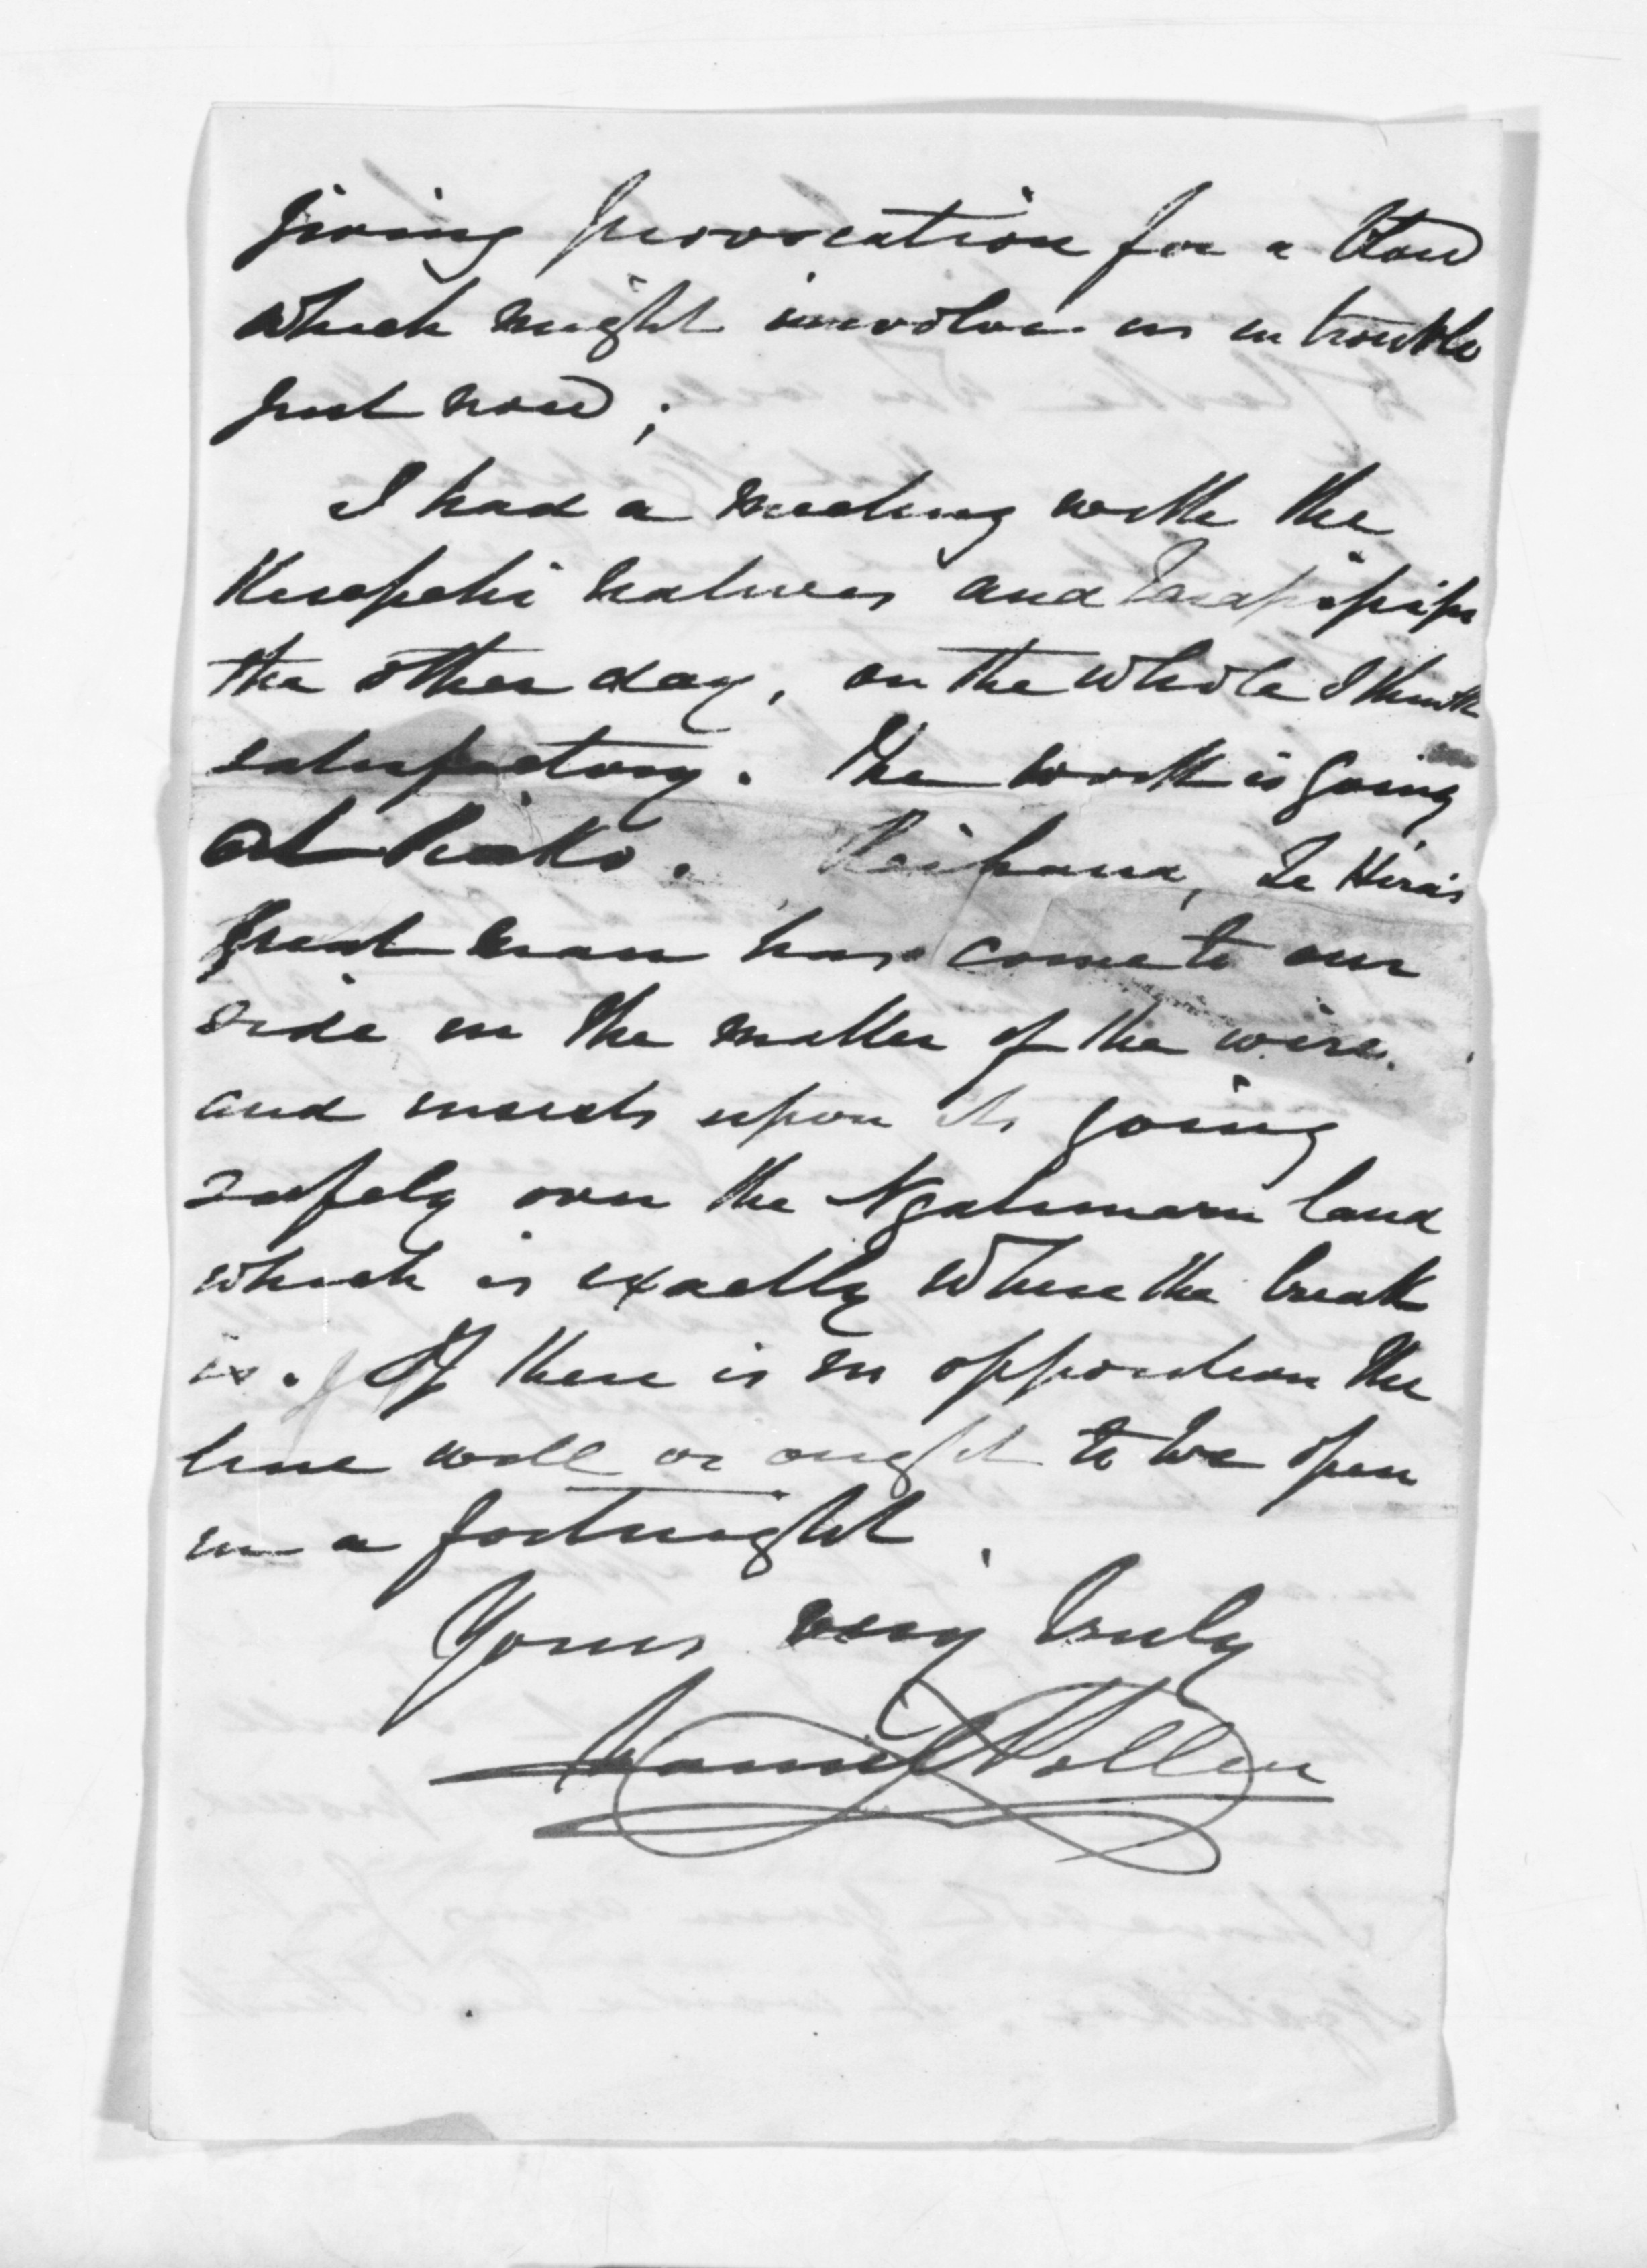 giving provocation for a blow
which might involve us in trouble
just now;
I had a meeting with the
natives and Tarapipipi
the other day, on the whole I think
satisfactory. The work is going
at Piako. Reihana, Te Hira's
great man has come to our
side in the matter of the wire.
and insists upon its going
safely over the Ngatimaru land
which is exactly where the break
is. If there is no opposition the
line will or ought to be open
in a fortnight.
Yours very truly
Daniel Pollen